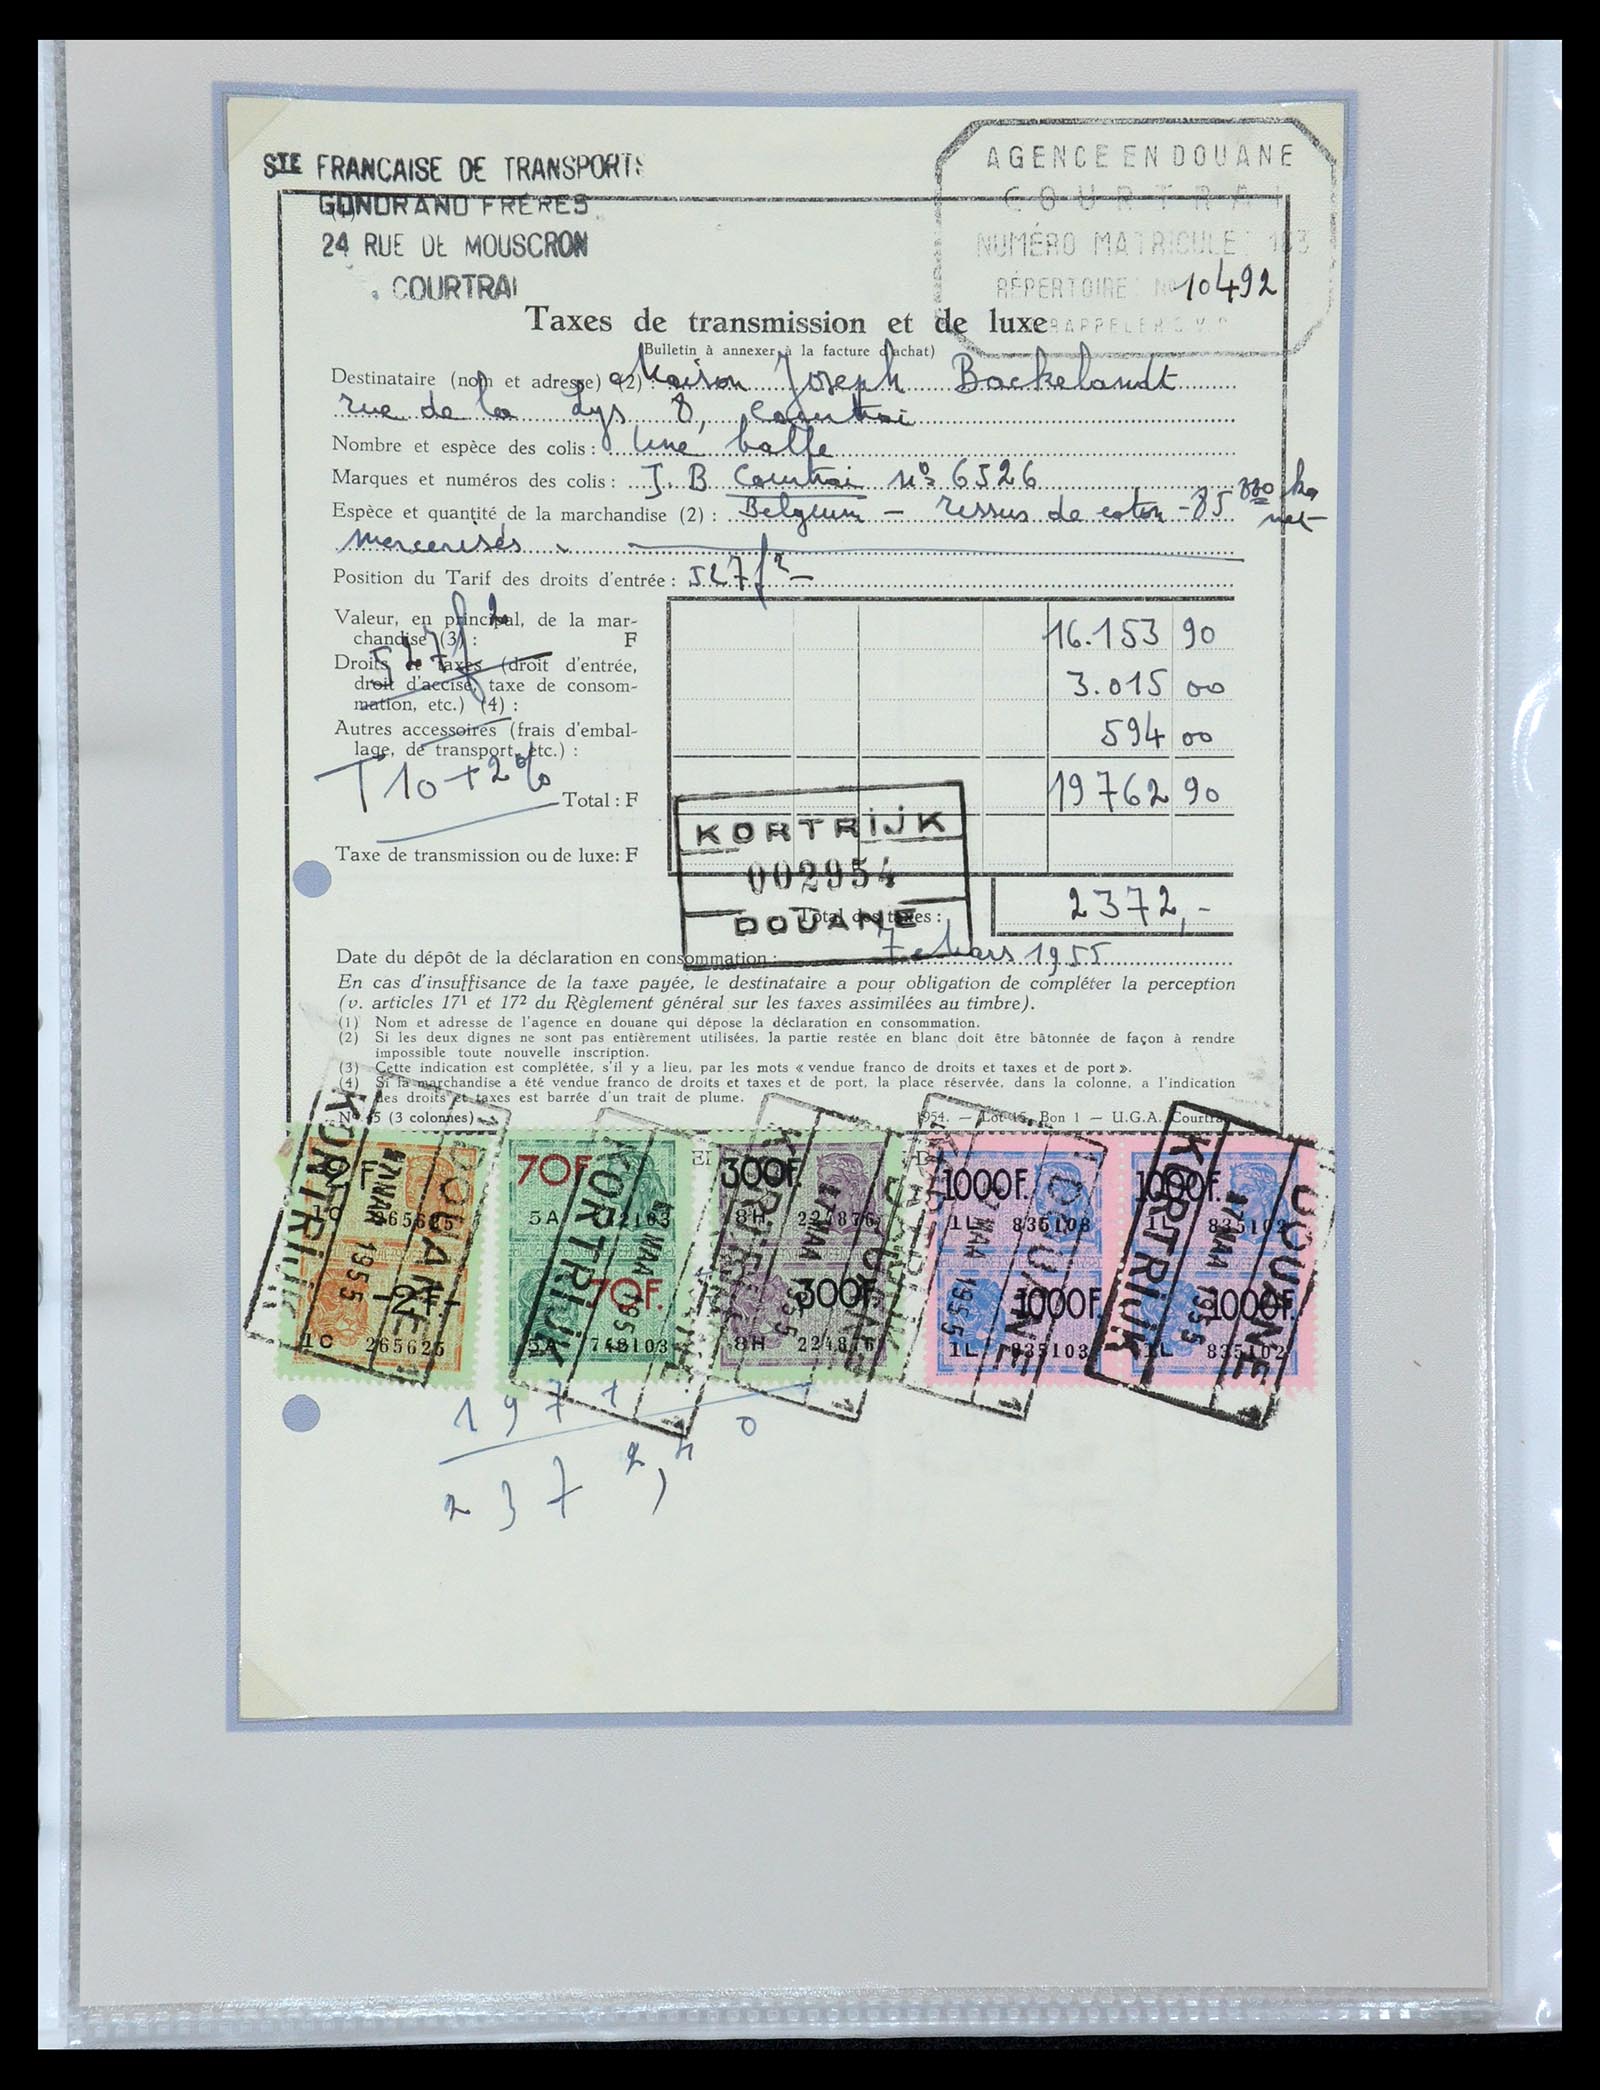 STE FRANCAISE DE TRANSPORTS
GONDRAND FRÈRES
24 RUE DE MOUSCRON
COURTRAI
AGENCE EN DOUANE
COURTRAI
NUMÉRO MATRICULE
RÉPERTOIRE No 10492
A RAPPELER S.V.P.
Taxes de transmission et de luxe
(Bulletin à annexer à la facture d'achat)
Destinataire (nom et adresse) (2) : Maison Joseph Backelandt
rue de la Lys 8, Courtrai
Nombre et espèce des colis : Une balle
Marques et numéros des colis : J. B Courtrai No 6526
Espèce et quantité de la marchandise (2) : Belgium – tissus de coton - 85 kg net
mercerisés
Position du Tarif des droits d'entrée : 527f2
Valeur, en principal, de la mar-
chandise (3) : F 16.153 90
527f2
Droits et taxes (droit d'entrée,
droit d'accise, taxe de consom-
mation, etc.) (4) : 3.015 00
Autres accessoires (frais d'embal-
lage, de transport, etc.) : 594 00
T 10 + 2 %
Total : F 19762 90
Taxe de transmission ou de luxe: F
KORTRIJK
002954
DOUANE
Total des taxes : 2372,-
Date du dépôt de la déclaration en consommation : 7 Mars 1955
En cas d'insuffisance de la taxe payée, le destinataire a pour obligation de compléter la perception
(v. articles 171 et 172 du Règlement général sur les taxes assimilées au timbre).
(1) Nom et adresse de l'agence en douane qui dépose la déclaration en consommation.
(2) Si les deux dignes ne sont pas entièrement utilisées, la partie restée en blanc doit être bâtonnée de façon à rendre
impossible toute nouvelle inscription.
(3) Cette indication est complétée, s'il y a lieu, par les mots « vendue franco de droits et taxes et de port ».
(4) Si la marchandise a été vendue franco de droits et taxes et de port, la place réservée, dans la colonne, a l'indication
des droits et taxes est barrée d'un trait de plume.
No 45 (3 colonnes)
1954. — Lot 15, Bon 1 — U.G.A. Courtrai
2F 70F. 300F. 1000F. 1000F.
1C 265625 5A 742103 8H 224876 1L 835103 1L 835102
2F 70F. 300F. 1000F. 1000F.
1C 265625 5A 742103 8H 224876 1L 835103 1L 835102
KORTRIJK 07 MAA 1955 DOUANE
KORTRIJK 07 MAA 1955 DOUANE
KORTRIJK 07 MAA 1955 DOUANE
KORTRIJK 07 MAA 1955 DOUANE
KORTRIJK 07 MAA 1955 DOUANE
1971
2372,40